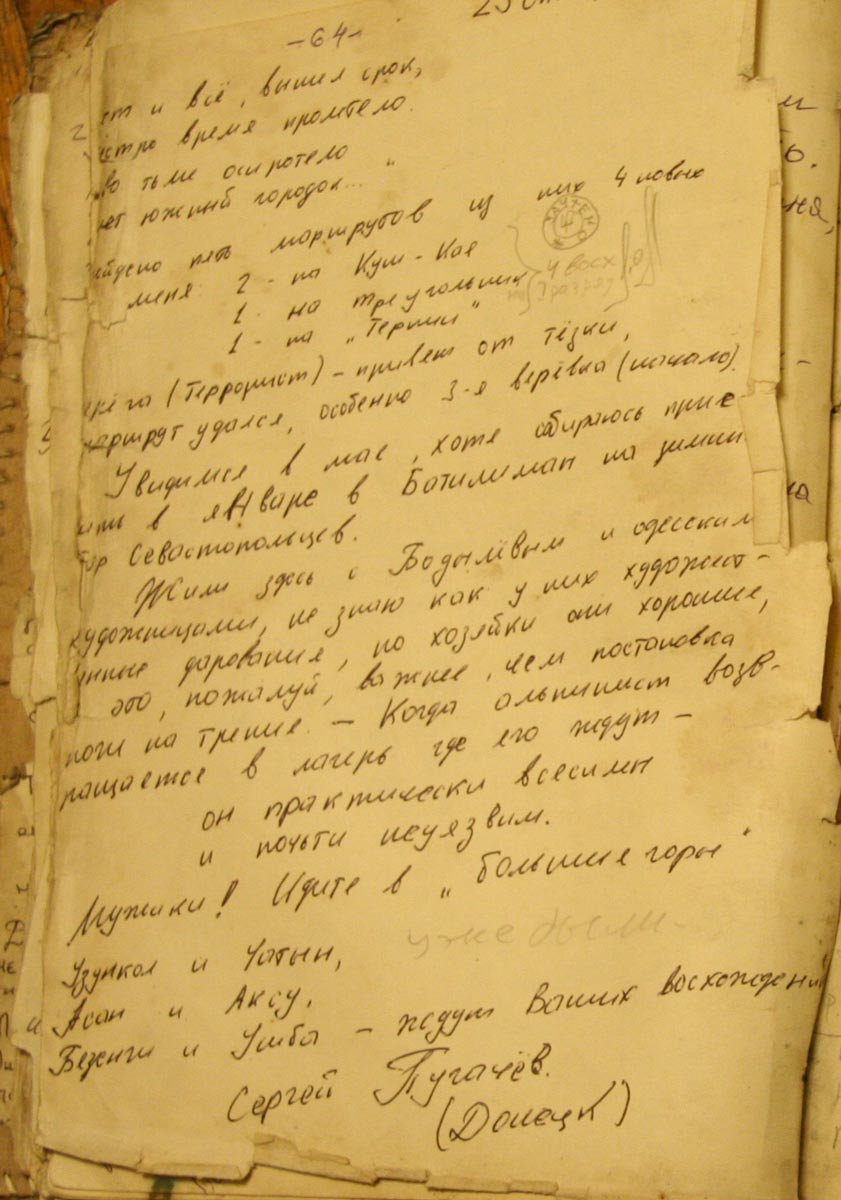 -64-
и всё, вышел срок,
время пролетело.
во тьме осиротело
южный городок... "
пять маршрутов из них 4 новых
меня: 2 - на Куш-Кае
1 - на треугольник
1 - на „Терпи"
4 восх
(Террорист) - привет от тёзки,
маршрут удался, особенно 3-я верёвка (начало).
Увидимся в мае, хотя собираюсь прие-
в январе в Батилиман на зимний
Севастопольцев.
Жили здесь с Бодылёвым и одесским
художницами, не знаю как у них художест-
дарования, но хозяйки они хорошие,
это, пожалуй, важнее, чем постановка
ноги на трение. - Когда альпинист возв-
ращается в лагерь где его ждут -
он практически всесилен
и почьти неуязвим.
Мужики! Идите в „большие горы"
уже были.
Узункол и Чатын,
Асан и Аксу,
Безенги и Ушба - ждут Ваших восхождений
Сергей Пугачёв.
(Донецк)